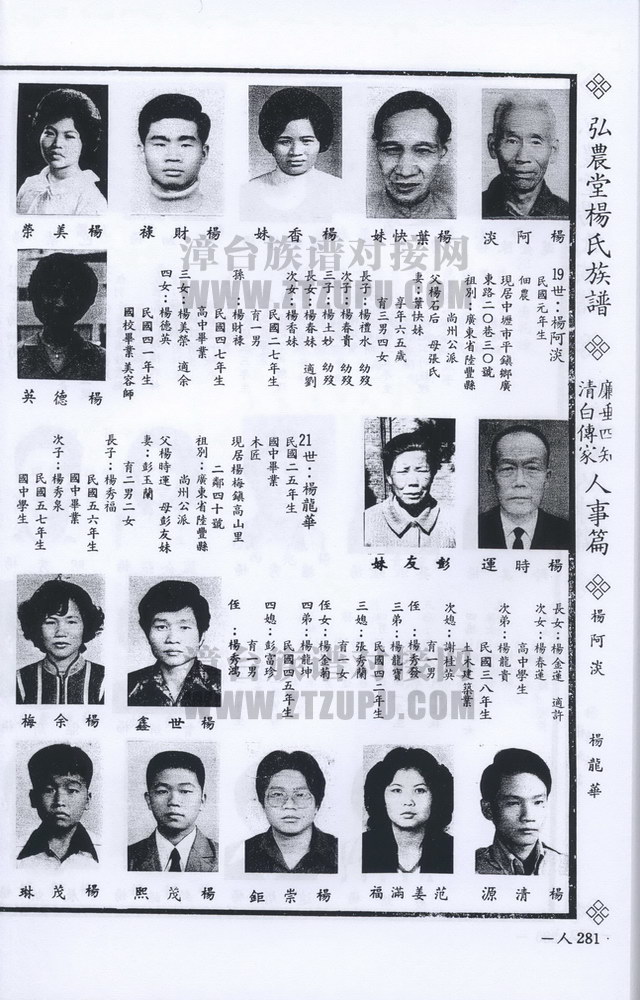 弘農堂楊氏族譜
廉垂四知
清白傳家
人事篇
楊阿淡
楊龍華
楊阿淡
楊葉快妹
楊香妹
楊財祿
楊美榮
19世：楊阿淡
民國元年生
佃農
現居中壢市平鎮鄉廣
東路二〇巷三〇號
祖別：廣東省陸豐縣
尚州公派
父楊石后 母張氏
妻：葉快妹
享年六五歲
育三男四女
長子：楊禮水 幼歿
次子：楊春貴 幼歿
三子：楊土妙 幼歿
長女：楊春妹 適劉
次女：楊香妹
民國二七年生
育一男
孫：楊財祿
民國四七年生
高中畢業
三女：楊美榮 適余
四女：楊德英
民國四一年生
國校畢業美容師
楊德英
楊時運
彭友妹
21世：楊龍華
民國二五年生
國中畢業
木匠
現居楊梅鎮高山里
二鄰四十號
祖別：廣東省陸豐縣
尚州公派
父楊時運 母彭友妹
妻：彭玉蘭
育二男二女
長子：楊秀福
民國五六年生
國中畢業
次子：楊秀泉
民國五七年生
國中學生
長女：楊金蓮 適許
次女：楊春蓮
高中學生
次弟：楊龍貴
民國三八年生
土木建築業
次媳：謝桂英
育一男
侄：楊秀發
三弟：楊龍寶
民國四二年生
三媳：張秀蘭
育一女
侄女：楊金菊
四弟：楊龍坤
民國四五年生
四媳：彭富珍
育一男
侄：楊秀鴻
楊世鑫
楊余梅
楊清源
范姜滿福
楊崇鉅
楊茂熙
楊茂琳
漳台族谱对接网
WWW.ZTZUPU.COM
漳台族谱对接网
WWW.ZTZUPU.COM
一人 281